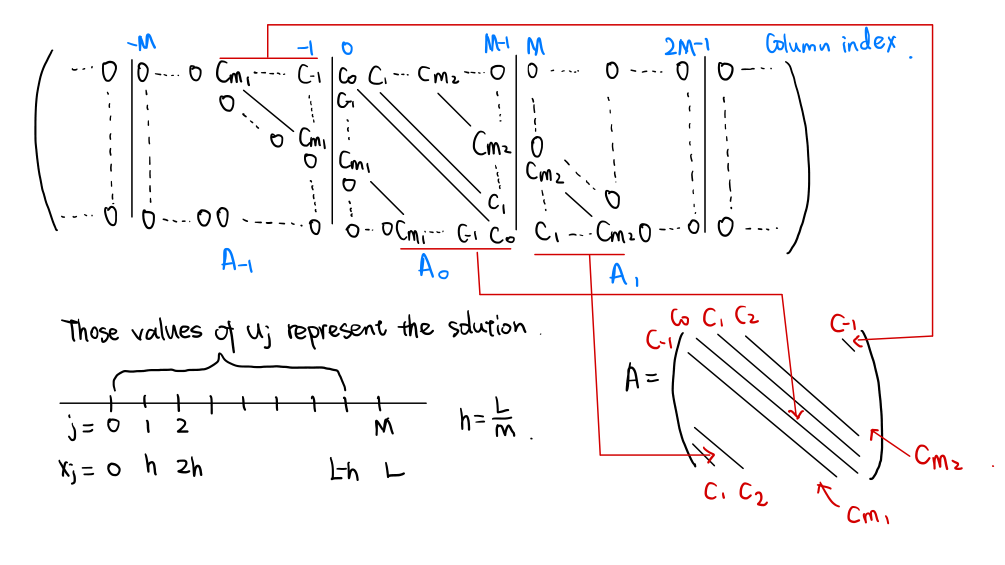 -M -1 0 M-1 M 2M-1 Column index.
0 0 0 Cm₁ C-1 C₀ C₁ Cm₂ 0 0 0 0 0
0 C-1
0 Cm₁ Cm₂ 0
0 Cm₁ Cm₂
0 C₁ 0
0 0 0 0 0 0 0 Cm₁ C-1 C₀ C₁ Cm₂ 0 0 0
A-1 A₀ A₁
Those values of uj represent the solution.
C₀ C₁ C₂ C-1
C-1
A =
j = 0 1 2 M
h = L/M.
xj = 0 h 2h L-h L
Cm₂
C₁ C₂
Cm₁